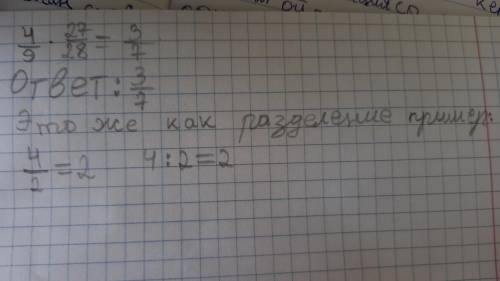 4/9 · 27/28 = 3/7
Ответ: 3/7
Это же как разделение пример:
4/2 = 2 4 : 2 = 2